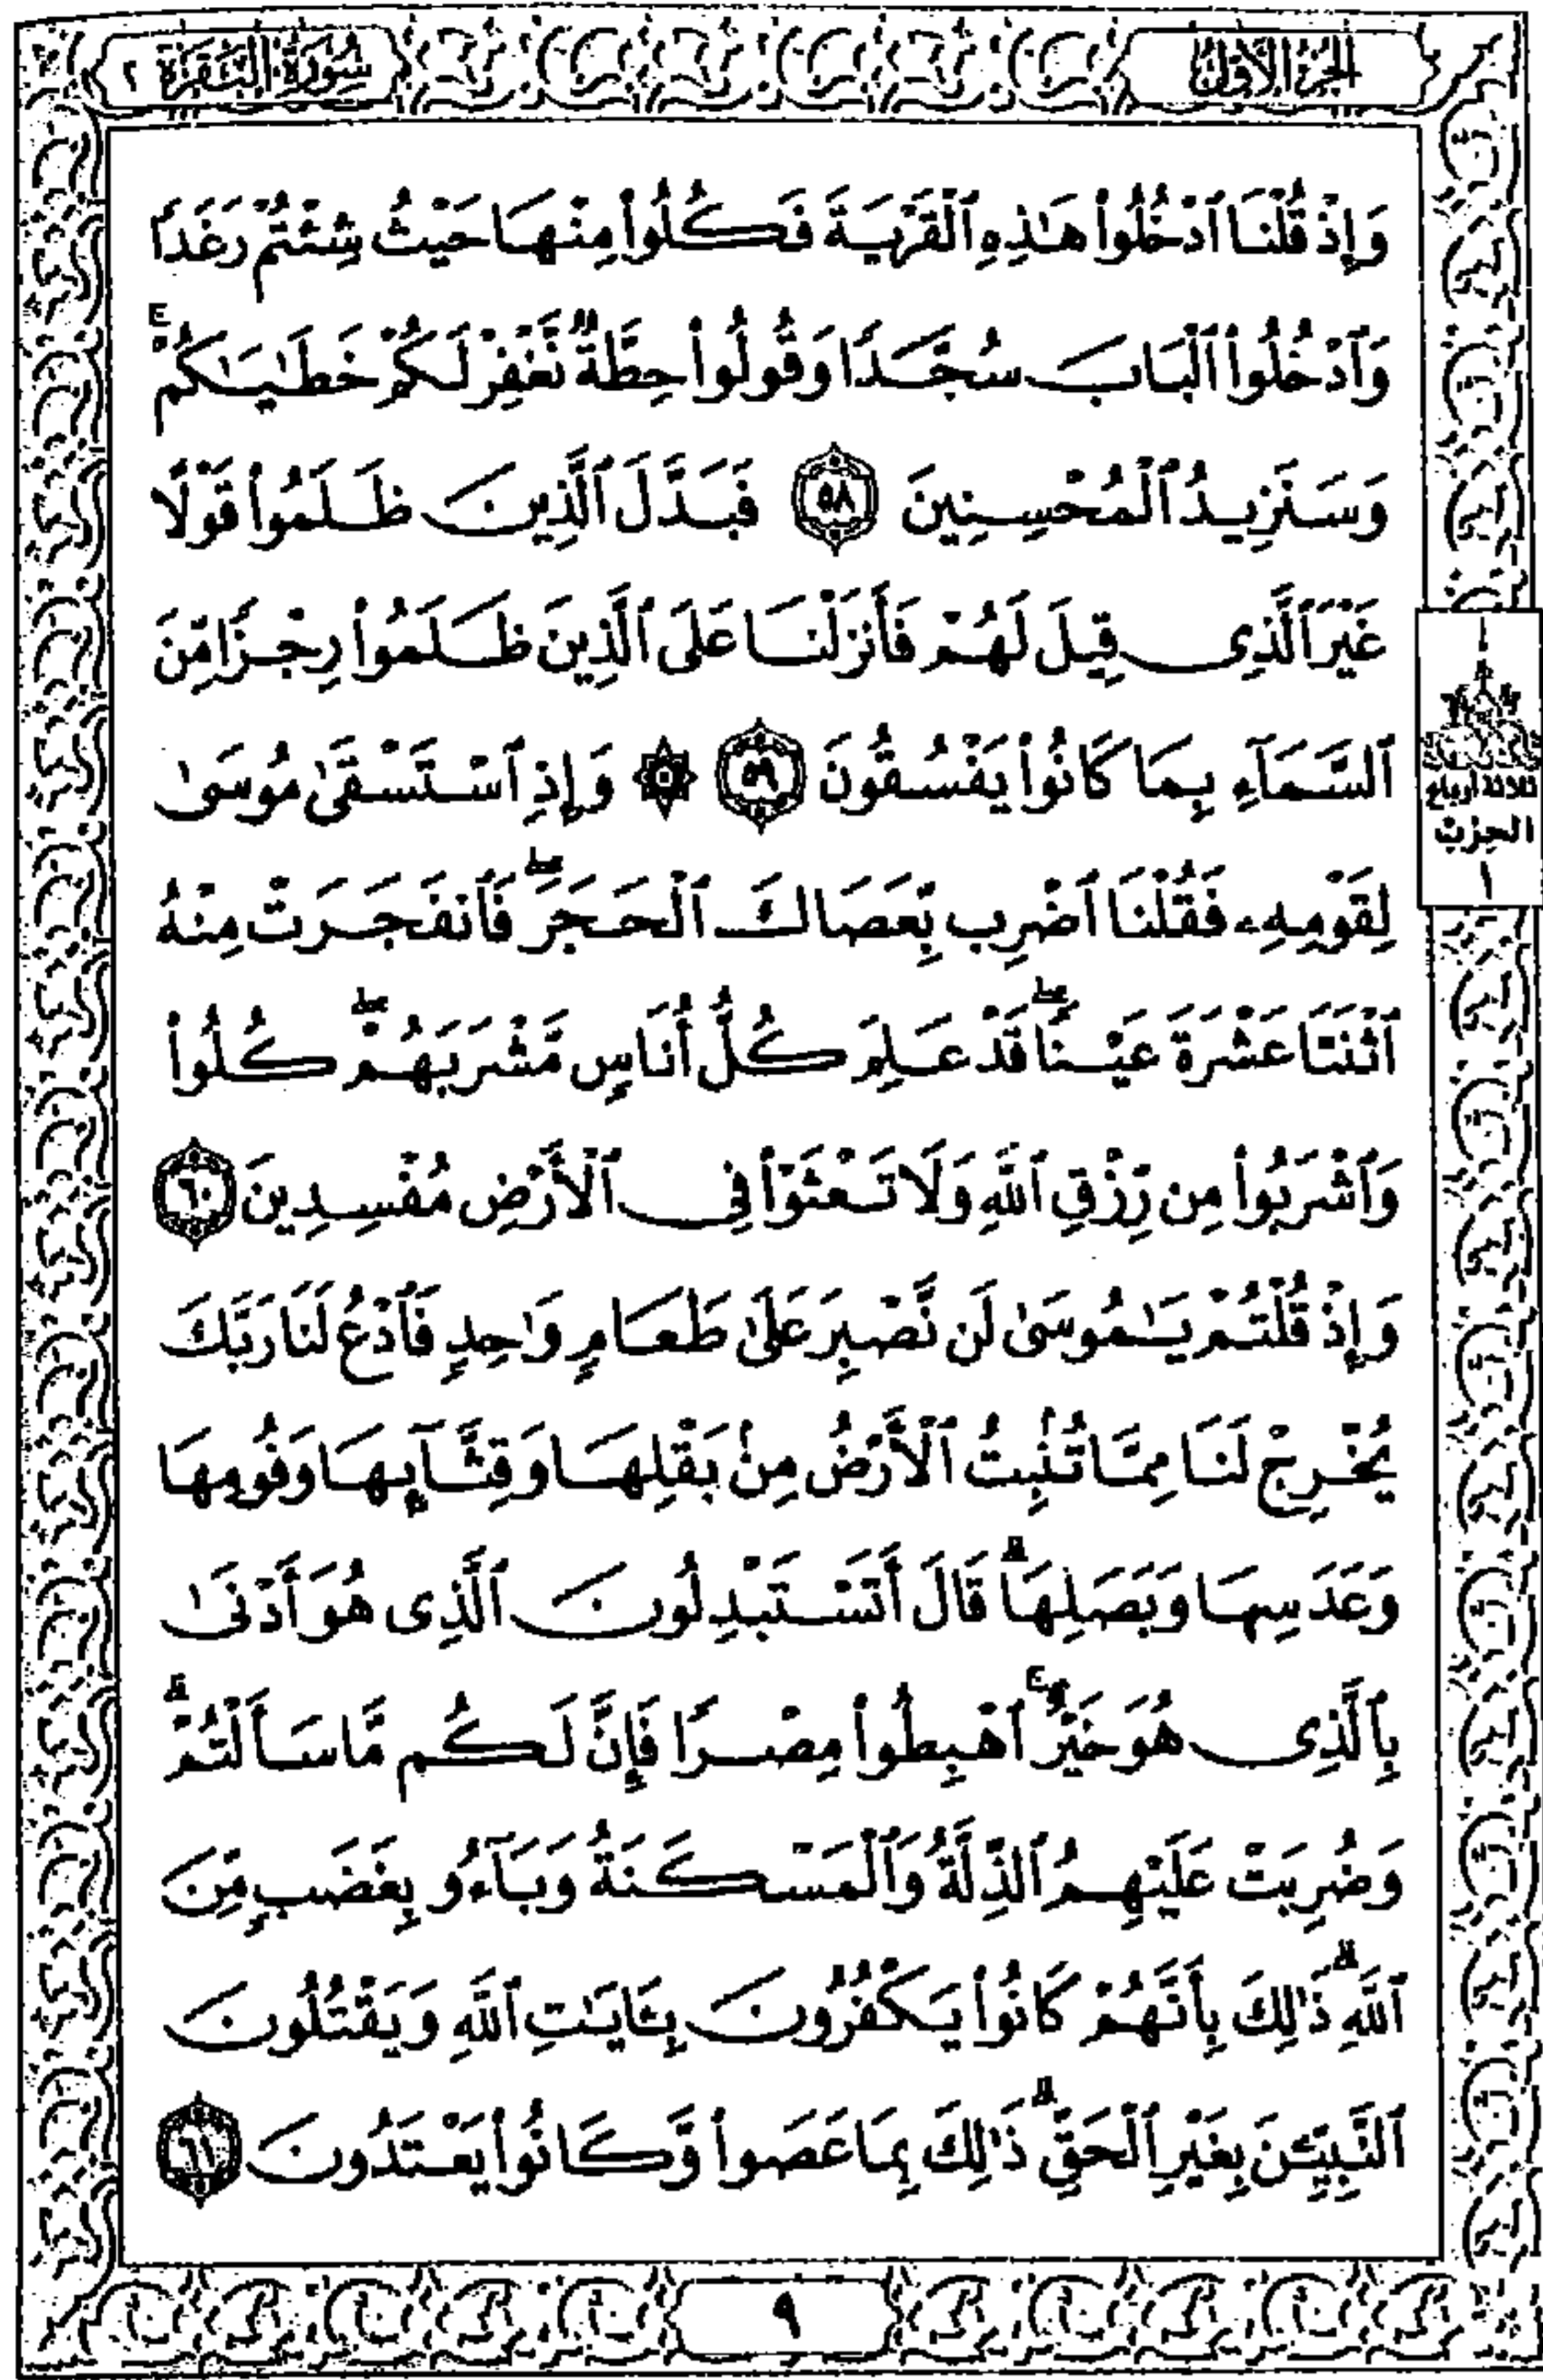 الجزء الأول
سورة البقرة ٢
وَإِذْ قُلْنَا ٱدْخُلُوا۟ هَـٰذِهِ ٱلْقَرْيَةَ فَكُلُوا۟ مِنْهَا حَيْثُ شِئْتُمْ رَغَدًا
وَٱدْخُلُوا۟ ٱلْبَابَ سُجَّدًا وَقُولُوا۟ حِطَّةٌ نَّغْفِرْ لَكُمْ خَطَـٰيَـٰكُمْ ۚ
وَسَنَزِيدُ ٱلْمُحْسِنِينَ ٥٨ فَبَدَّلَ ٱلَّذِينَ ظَلَمُوا۟ قَوْلًا
غَيْرَ ٱلَّذِى قِيلَ لَهُمْ فَأَنزَلْنَا عَلَى ٱلَّذِينَ ظَلَمُوا۟ رِجْزًا مِّنَ
ٱلسَّمَآءِ بِمَا كَانُوا۟ يَفْسُقُونَ ٥٩ ۞ وَإِذِ ٱسْتَسْقَىٰ مُوسَىٰ
لِقَوْمِهِۦ فَقُلْنَا ٱضْرِب بِّعَصَاكَ ٱلْحَجَرَ ۖ فَٱنفَجَرَتْ مِنْهُ
ٱثْنَتَا عَشْرَةَ عَيْنًا ۖ قَدْ عَلِمَ كُلُّ أُنَاسٍ مَّشْرَبَهُمْ ۖ كُلُوا۟
وَٱشْرَبُوا۟ مِن رِّزْقِ ٱللَّهِ وَلَا تَعْثَوْا۟ فِى ٱلْأَرْضِ مُفْسِدِينَ ٦٠
وَإِذْ قُلْتُمْ يَـٰمُوسَىٰ لَن نَّصْبِرَ عَلَىٰ طَعَامٍ وَٰحِدٍ فَٱدْعُ لَنَا رَبَّكَ
يُخْرِجْ لَنَا مِمَّا تُنۢبِتُ ٱلْأَرْضُ مِنۢ بَقْلِهَا وَقِثَّآئِهَا وَفُومِهَا
وَعَدَسِهَا وَبَصَلِهَا ۖ قَالَ أَتَسْتَبْدِلُونَ ٱلَّذِى هُوَ أَدْنَىٰ
بِٱلَّذِى هُوَ خَيْرٌ ۚ ٱهْبِطُوا۟ مِصْرًا فَإِنَّ لَكُم مَّا سَأَلْتُمْ ۗ
وَضُرِبَتْ عَلَيْهِمُ ٱلذِّلَّةُ وَٱلْمَسْكَنَةُ وَبَآءُو بِغَضَبٍ مِّنَ
ٱللَّهِ ۗ ذَٰلِكَ بِأَنَّهُمْ كَانُوا۟ يَكْفُرُونَ بِـَٔايَـٰتِ ٱللَّهِ وَيَقْتُلُونَ
ٱلنَّبِيِّـۧنَ بِغَيْرِ ٱلْحَقِّ ۗ ذَٰلِكَ بِمَا عَصَوا۟ وَّكَانُوا۟ يَعْتَدُونَ ٦١
ثلاثة أرباع
الحزب
١
٩